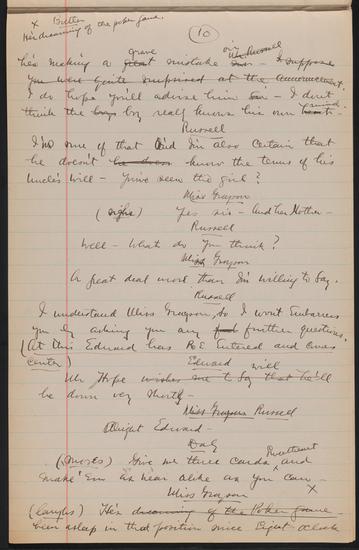 x Butler
He's dreaming of the poker game.
10
he's making a great grave mistake sir - or Mr Russell I suppose
You were quite surprised at the announcement.
I do hope you'll advise him sir - I don't
think the boy really knows his own mind.
Russell
I'm sure of that And I'm also certain that
he doesn't know the terms of his
Uncle's will - You've seen the girl?
Miss Grayson
(sighs) Yes sir - And her Mother -
Russell
Well - What do you think?
Miss Grayson
A great deal more than I'm willing to say.
Russell
I understand Miss Grayson, So I won't Embarrass
you by asking you any further questions.
(At this Edward has R.E. Entered and crosses
center)
Edward
Mr Hope wishes me to will say that he'll
be down very shortly -
Miss Grayson Russell
Alright Edward -
Daly
(Moves) Give me three cards Sweetheart and
make 'Em as near alike as you can -
Miss Grayson x
(laughs) He's dreaming of the Poker game -
been asleep in that position since Eight o'clock